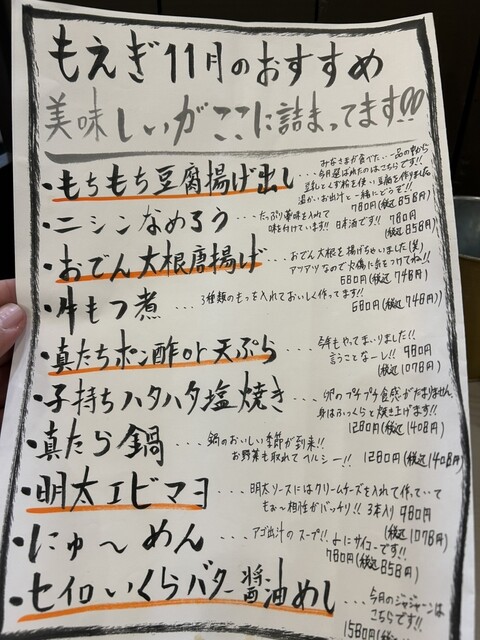 もえぎ11月のおすすめ
美味しいがここに詰まってます!!
・もちもち豆腐揚げ出し
みなさまが食べた...一品の中から
今月選ばれたのはこちらです!!
豆乳とくず粉を使い豆腐を作りました
温かいお出汁と一緒にどうぞ!!
780円(税込858円)
・ニシンなめろう
...たっぷり薬味を入れて
味を付けています!! 日本酒です!! 780円
(税込858円)
・おでん大根唐揚げ
...おでん大根を揚げちゃいました(笑)
アツアツなので火傷に気をつけてね!!
680円(税込748円)
・牛もつ煮
...3種類のもつを入れておいしく作ってます!!
680円(税込748円)
・真たちポン酢or天ぷら
...今年もやってまいりました!!
言うことなーし!! 980円
(税込1078円)
・子持ちハタハタ塩焼き
...卵のプチプチ食感がたまりません
身はふっくらと焼き上げます!!
1280円(税込1408円)
・真たら鍋
...鍋のおいしい季節が到来!!
お野菜も取れてヘルシー!! 1280円(税込1408円)
・明太エビマヨ
...明太ソースにはクリームチーズを入れて作っていて
もぉ~相性がバッチリ!! 3本入り 980円
(税込1078円)
・にゅ～めん
...アゴ出汁のスープ!! よにサイコーです!!
780円(税込858円)
・セイロいくらバター醤油めし
...今月のジャジャーンは
こちらです!!
1580円(税込